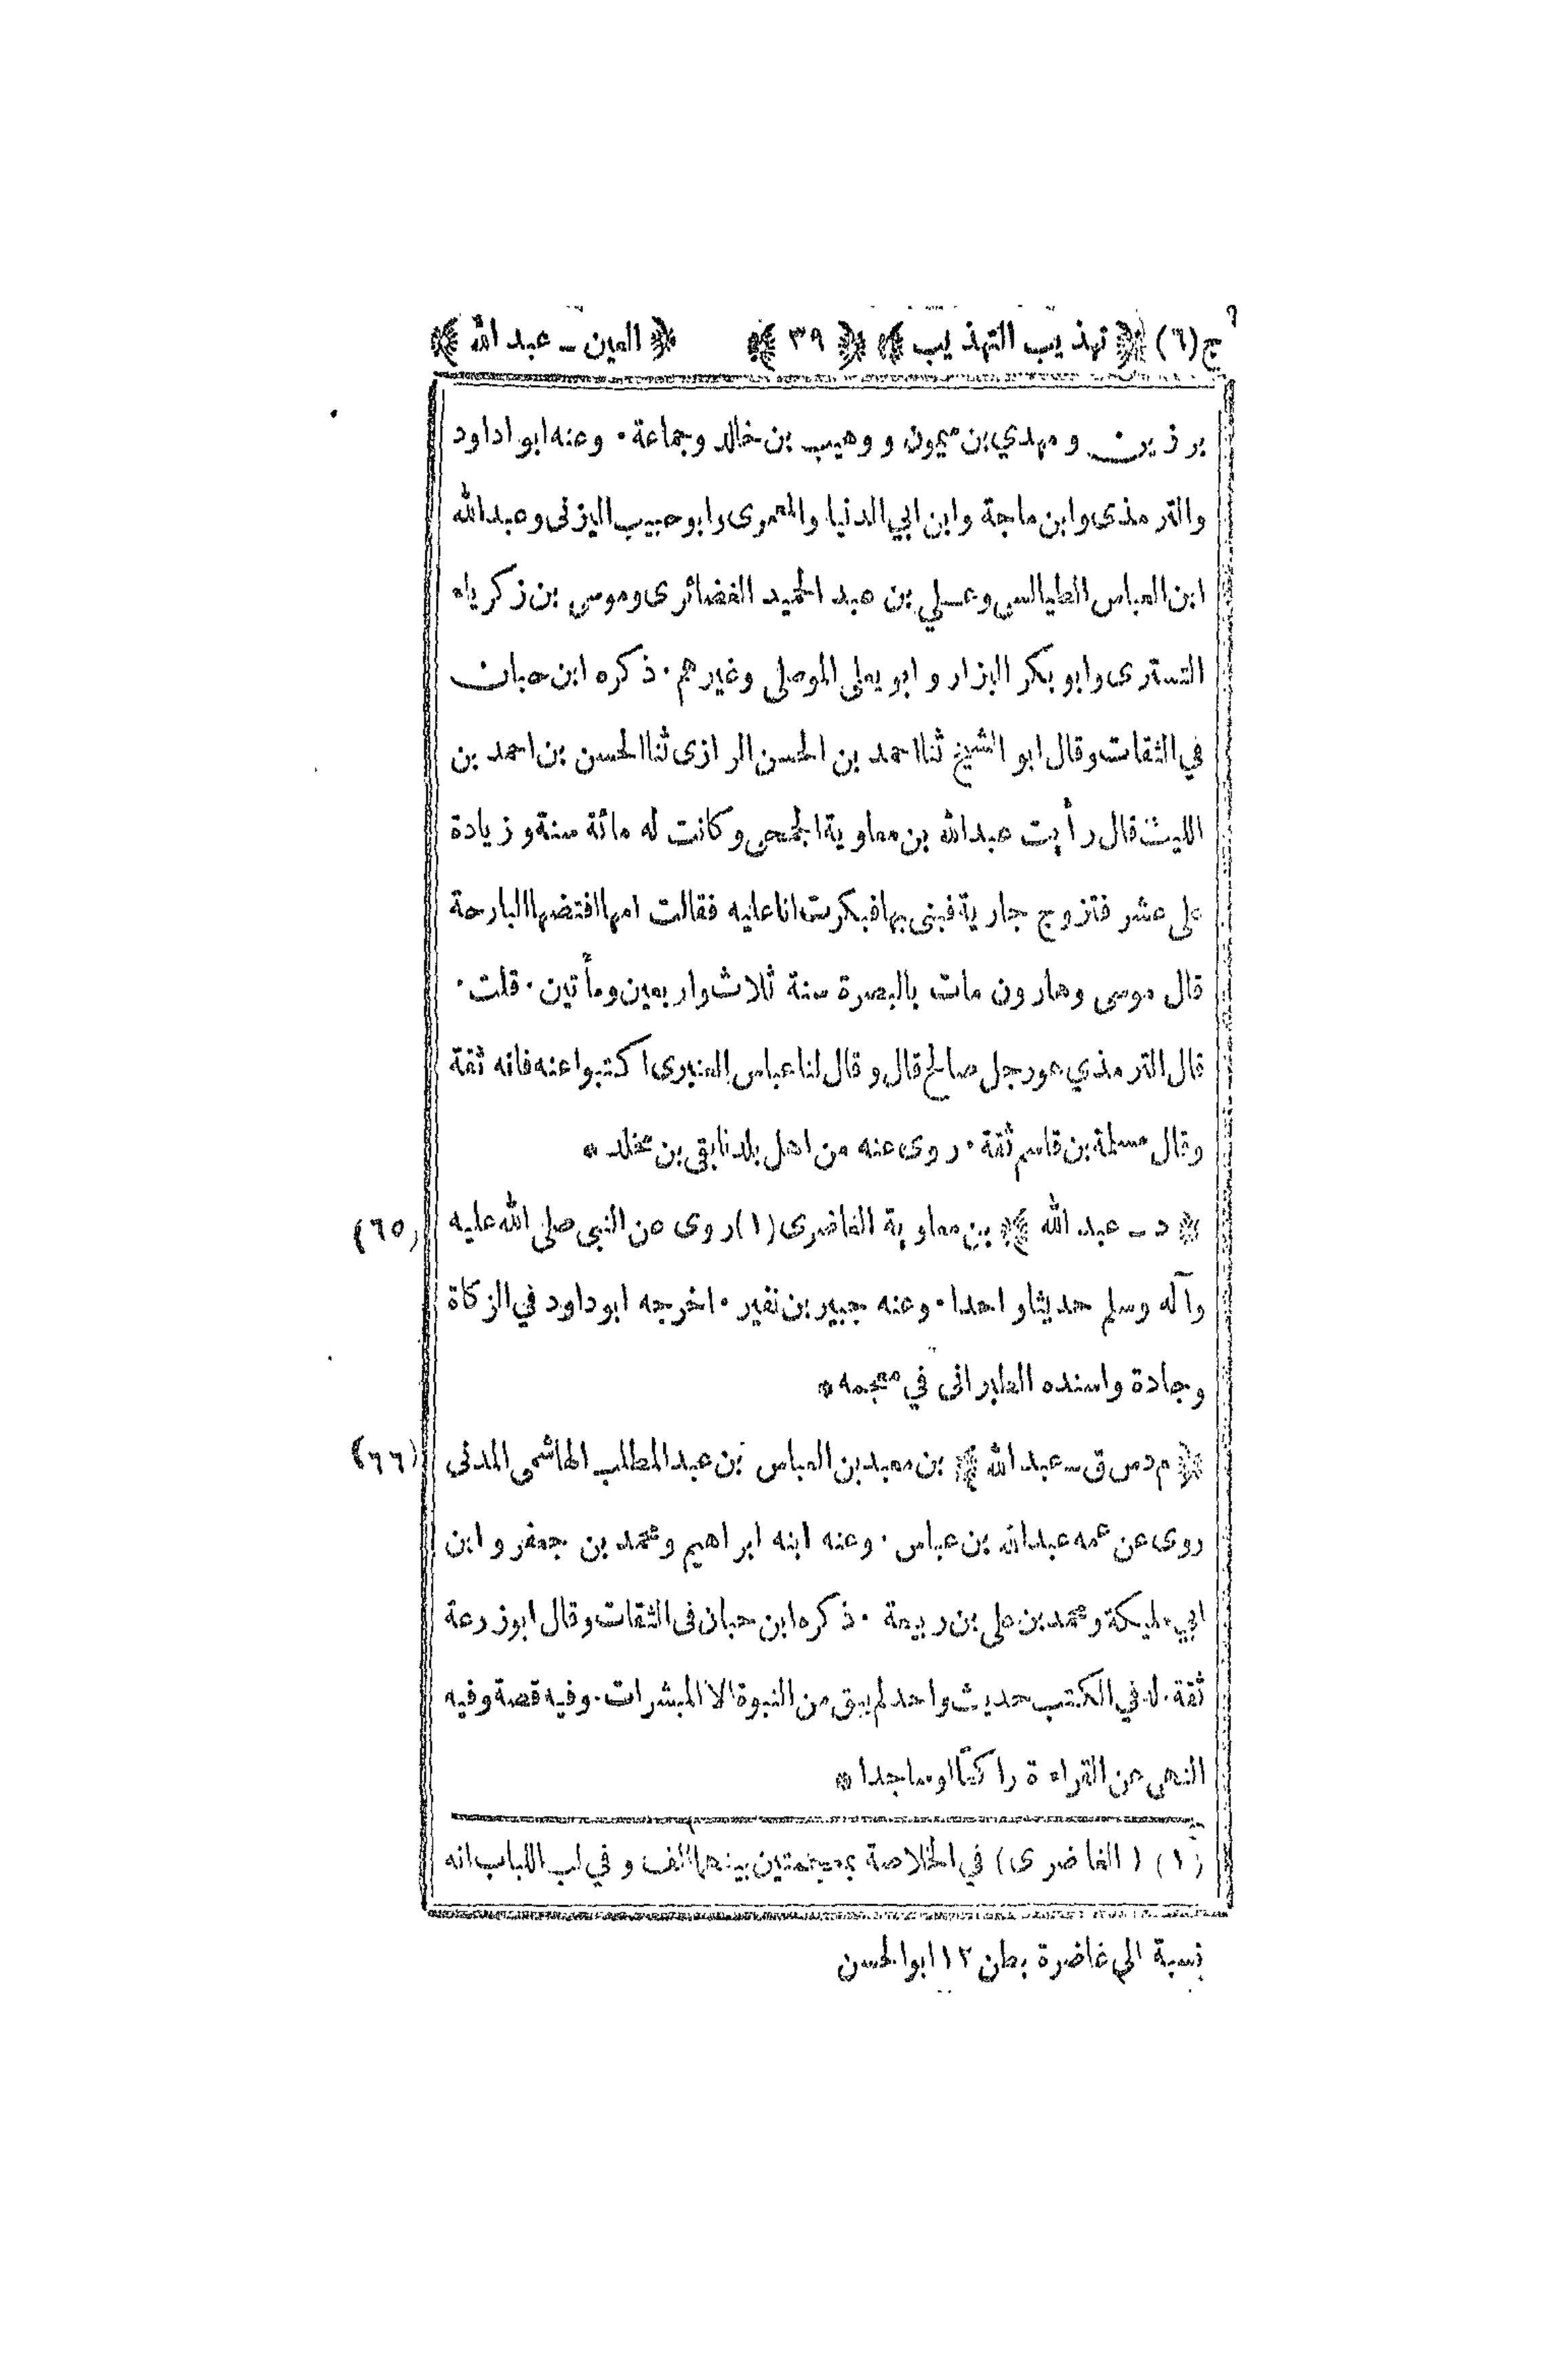 ج(٦) ﴿تهذيب التهذيب﴾ ﴿٣٩﴾ ﴿العين ـ عبد الله﴾
برزين ومهدي بن ميمون ووهيب بن خالد وجماعة. وعنه ابو اداود
والترمذى وابن ماجة وابن ابي الدنيا والمعمرى وابو حبيب اليزنى وعبد الله
ابن العباس الطيالسى وعلي بن عبد الحميد الغضائرى وموسى بن زكرياء
التسترى وابو بكر البزار وابو يعلى الموصلى وغيرهم. ذكره ابن حبان
في الثقات وقال ابو الشيخ ثنا احمد بن الحسن الرازى ثنا الحسن بن احمد بن
الليث قال رأيت عبد الله بن معاوية الجمحى وكانت له مائة سنة وزيادة
على عشر فتزوج جارية فبنى بها فبكرت انا عليه فقالت امها افتضها البارحة
قال موسى وهارون مات بالبصرة سنة ثلاث واربعين ومأتين. قلت.
قال الترمذي هو رجل صالح قال وقال لنا عباس العنبرى اكتبوا عنه فانه ثقة
وقال مسلمة بن قاسم ثقة. روى عنه من اهل بلدنا بقى بن مخلد *
(٦٥) ﴿د ـ عبد الله﴾ بن معاوية الغاضرى (١) روى عن النبي صلى الله عليه
وآله وسلم حديثا واحدا. وعنه جبير بن نفير. اخرجه ابو داود في الزكاة
وجادة واسنده الطبرانى في معجمه *
(٦٦) ﴿م د س ق ـ عبد الله﴾ بن معبد بن العباس بن عبد المطلب الهاشمى المدنى
روى عن عمه عبد الله بن عباس. وعنه ابنه ابراهيم ومحمد بن جعفر وابن
ابي مليكة ومحمد بن على بن ربيعة. ذكره ابن حبان فى الثقات وقال ابو زرعة
ثقة. له في الكتب حديث واحد لم يبق من النبوة الا المبشرات. وفيه قصة وفيه
النهى عن القراءة راكعًا او ساجدا *
(١) (الغاضرى) في الخلاصة بمعجمتين بينهما الف وفي لب اللباب انه
نسبة الى غاضرة بطن ١٢ ابو الحسن